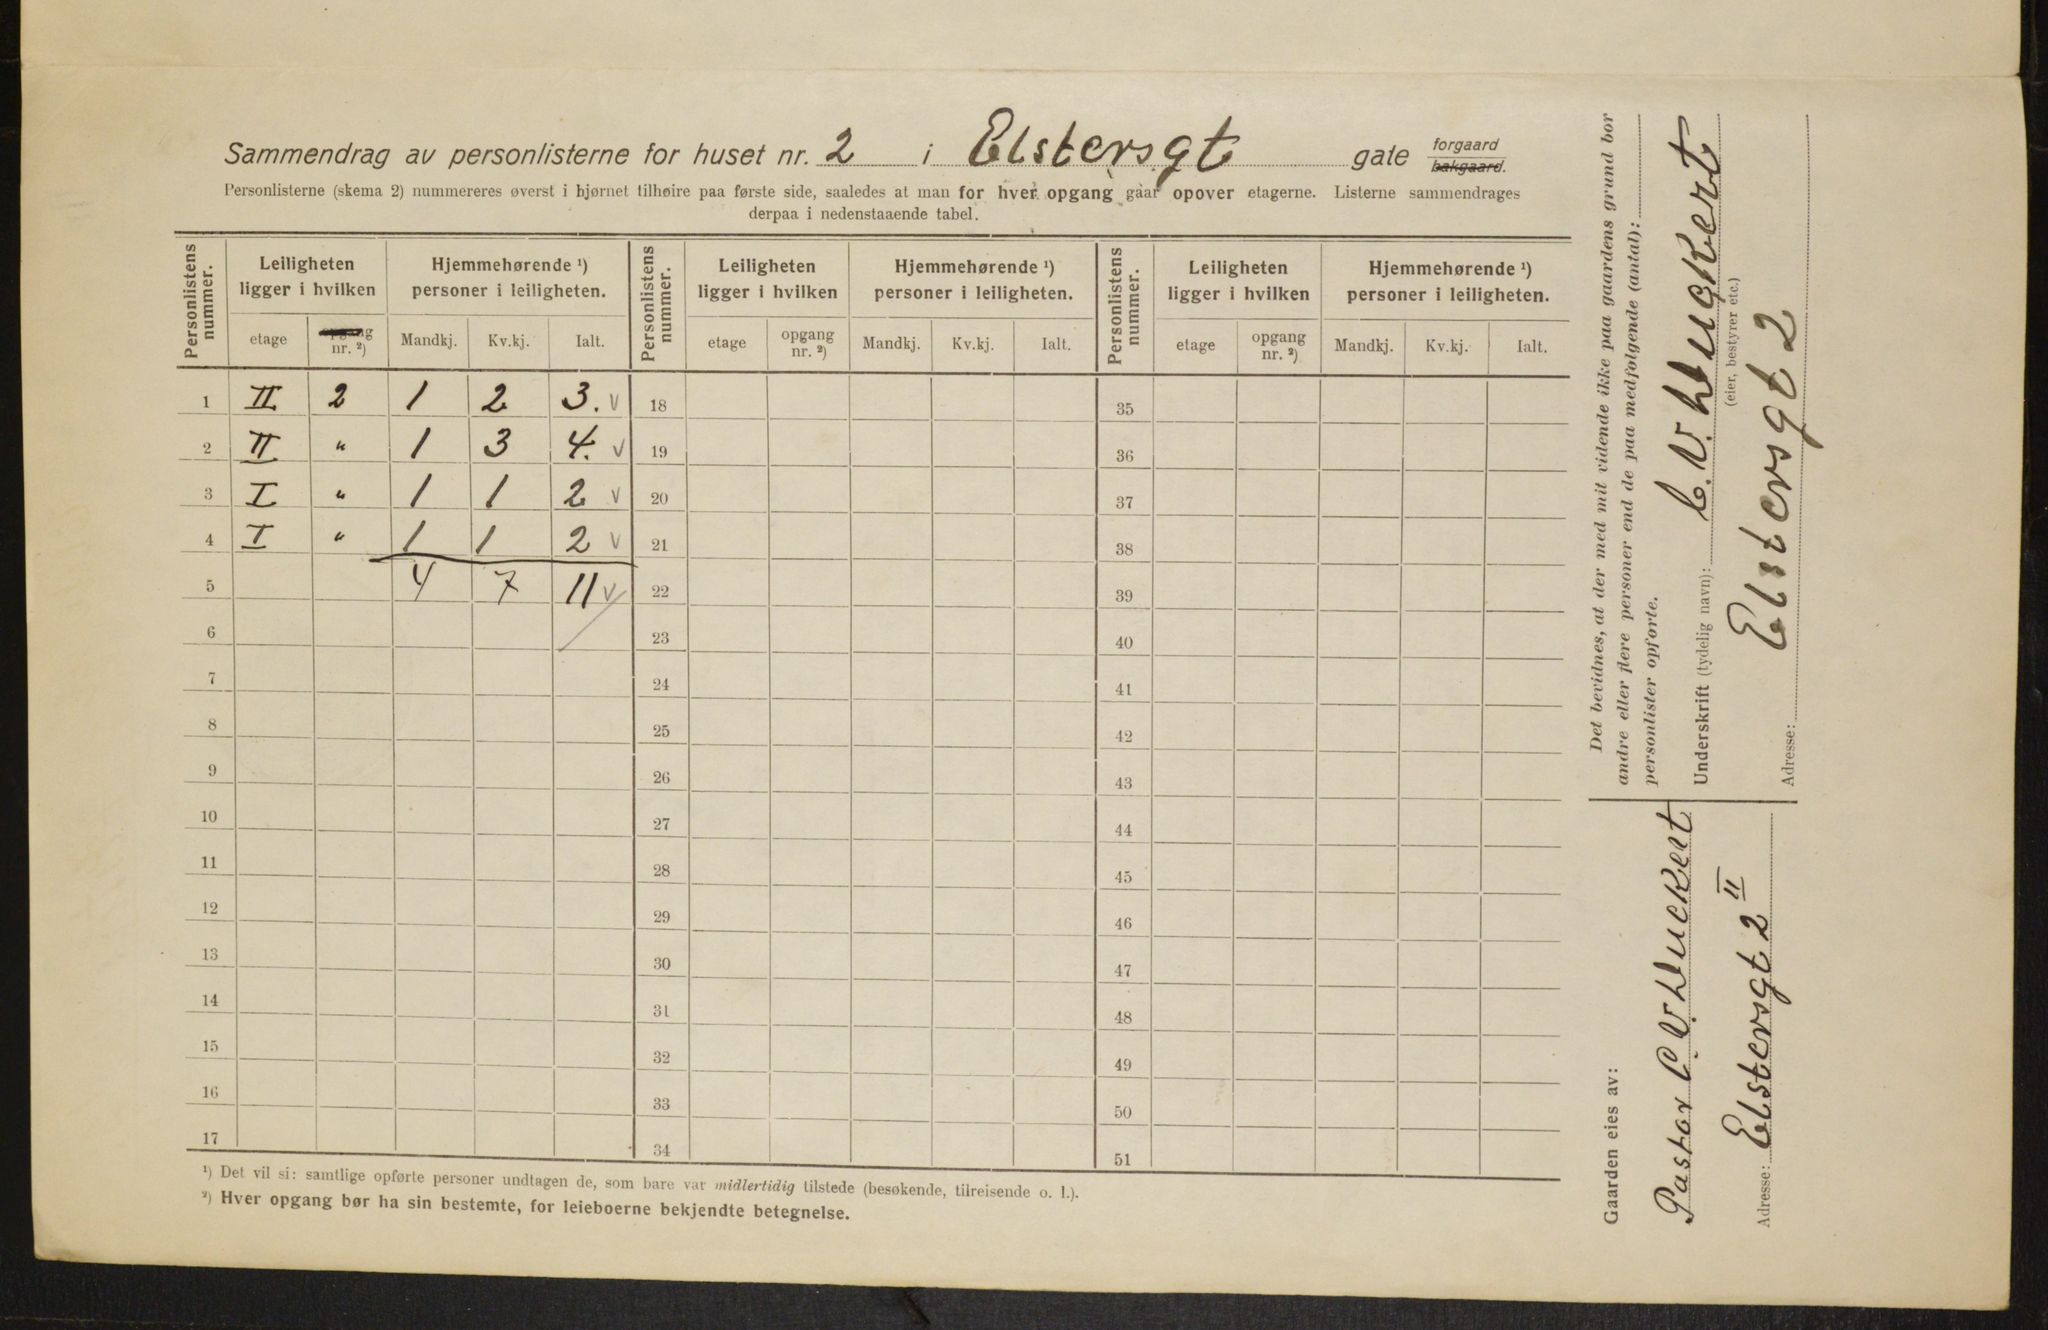 Sammendrag av personlisterne for huset nr. 2 i Elstersgt gate forgaard bakgaard.
Personlisterne (skema 2) nummereres øverst i hjørnet tilhøire paa første side, saaledes at man for hver opgang gaar opover etagerne. Listerne sammendrages
derpaa i nedenstaaende tabel.
Personlistens nummer. Leiligheten ligger i hvilken Hjemmehørende ¹) personer i leiligheten. Personlistens nummer. Leiligheten ligger i hvilken Hjemmehørende ¹) personer i leiligheten. Personlistens nummer. Leiligheten ligger i hvilken Hjemmehørende ¹) personer i leiligheten.
etage opgang nr. ²) Mandkj. Kv.kj. Ialt. etage opgang nr. ²) Mandkj. Kv.kj. Ialt. etage opgang nr. ²) Mandkj. Kv.kj. Ialt.
1 II 2 1 2 3. v 18 35
2 II " 1 3 4. v 19 36
3 I " 1 1 2 v 20 37
4 I " 1 1 2 v 21 38
5 4 7 11 v 22 39
6 23 40
7 24 41
8 25 42
9 26 43
10 27 44
11 28 45
12 29 46
13 30 47
14 31 48
15 32 49
16 33 50
17 34 51
¹) Det vil si: samtlige opførte personer undtagen de, som bare var midlertidig tilstede (besøkende, tilreisende o. l.).
²) Hver opgang bør ha sin bestemte, for leieboerne bekjendte betegnelse.
Det bevidnes, at der med mit vidende ikke paa gaardens grund bor
andre eller flere personer end de paa medfølgende (antal):
personlister opførte.
Underskrift (tydelig navn): C. V.
(eier, bestyrer etc.)
Adresse: Elstersgt 2
Gaarden eies av:
Pastor C V
Adresse: Elstersgt 2 II